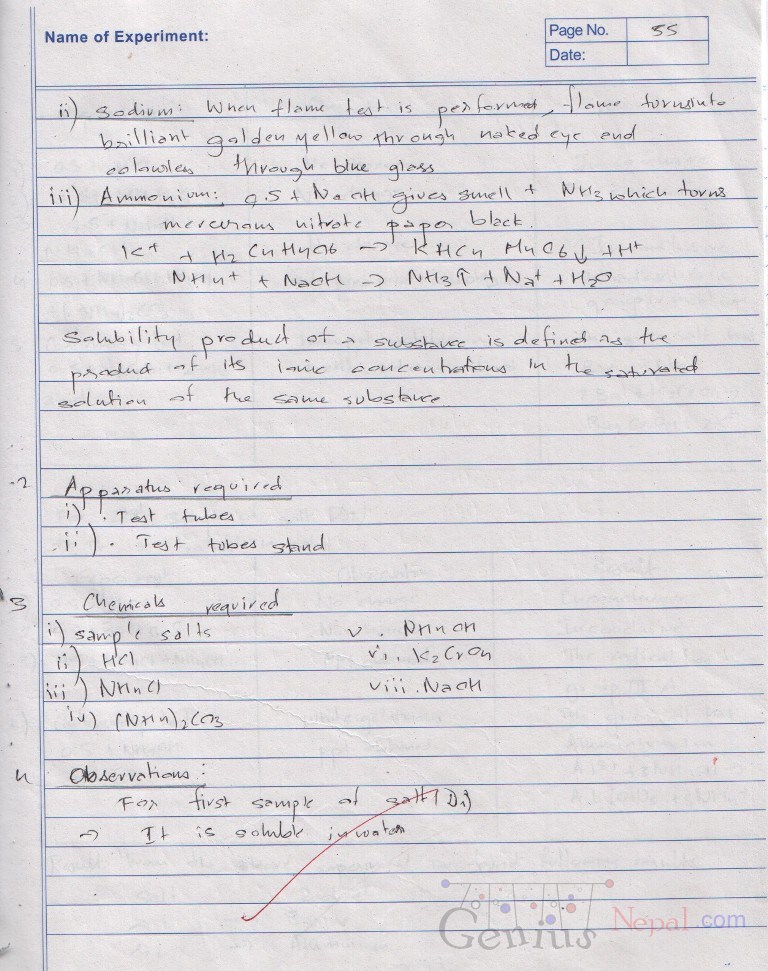 Name of Experiment:
Page No. 55
Date:
ii) Sodium: When flame test is performed, flame turns into
brilliant golden yellow through naked eye and
colourless through blue glass
iii) Ammonium: O.S + NaOH gives smell + NH3 which turns
mercurous nitrate paper black.
K+ + H2 C4H4O6 → KHC4 H4O6↓ + H+
NH4+ + NaOH → NH3↑ + Na+ + H2O
Solubility product of a substance is defined as the
product of its ionic concentrations in the saturated
solution of the same substance
2 Apparatus required
i) . Test tubes
ii) . Test tubes stand
3 Chemicals required
i) sample salts v . NH4OH
ii) HCl vi . K2CrO4
iii) NH4Cl viii . NaOH
iv) (NH4)2CO3
4 Observations :
For first sample of salt (D1)
→ It is soluble in water
Genius Nepal.com